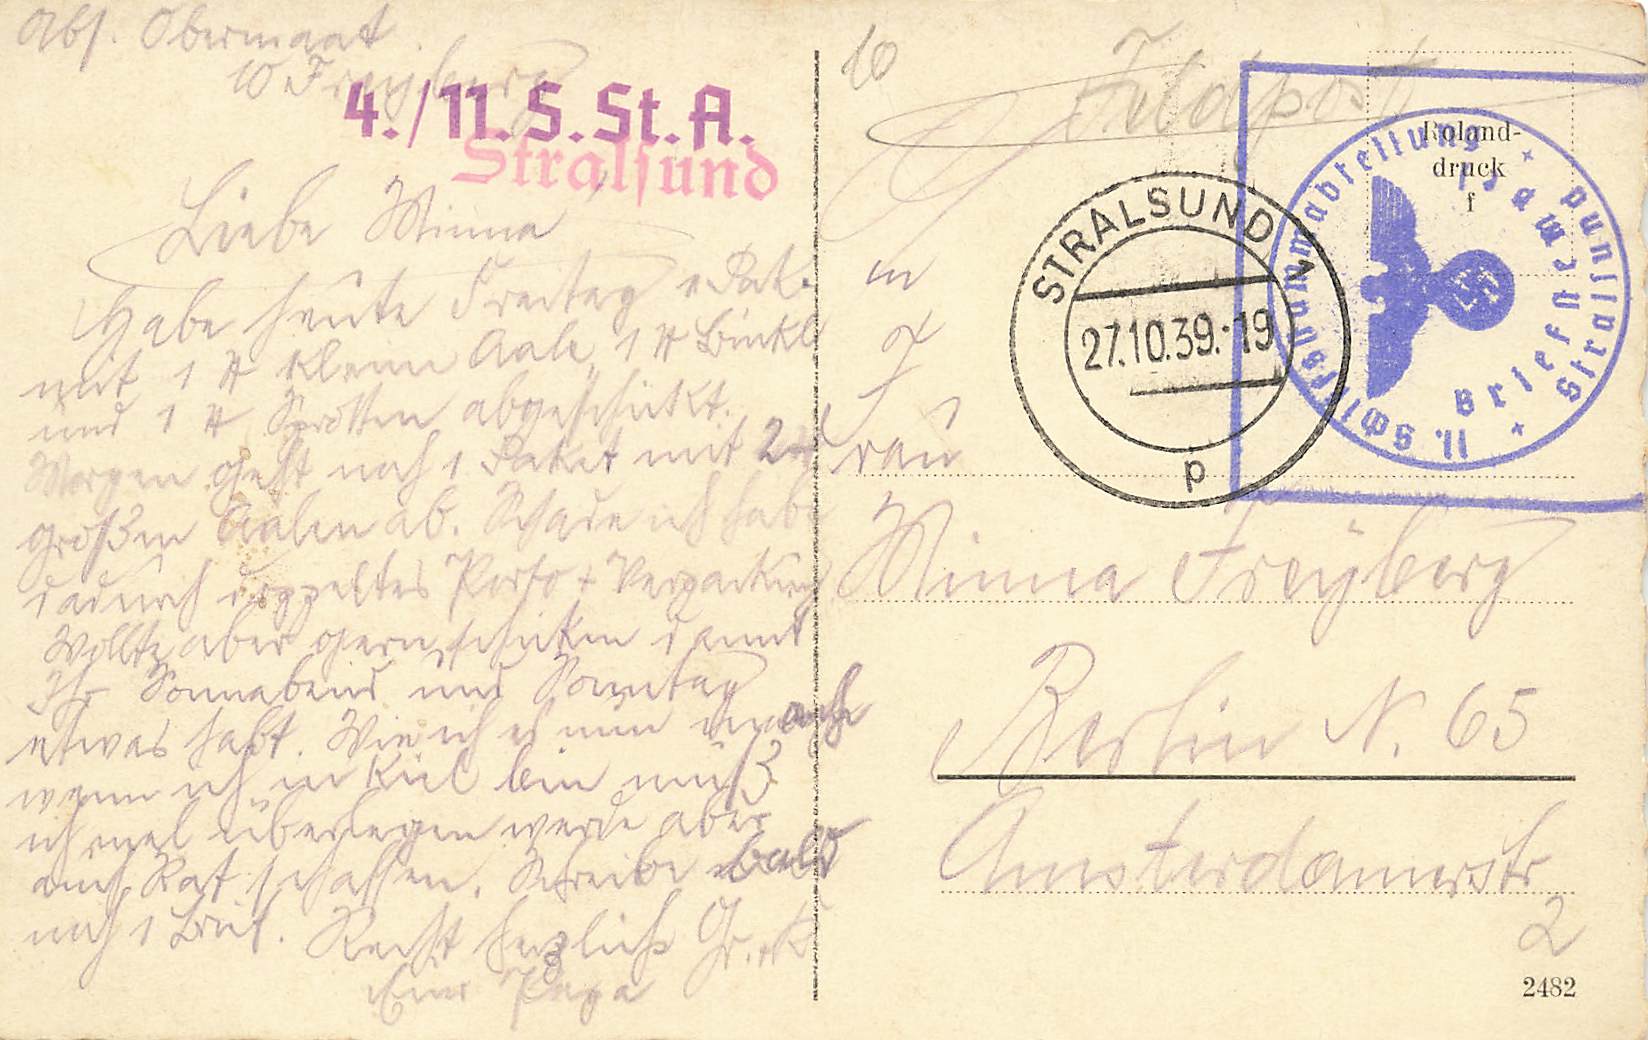 Abs. Obermaat
W Freyberg
4./11. S.St.A.
Stralsund
Liebe Minna
Habe heute Freitag 1 Pak.
mit 1 ℔ kleine Aale, 1 ℔ Bückl
und 1 ℔ Sprotten abgeschickt.
Morgen geht noch 1 Paket mit 2 ℔
großen Aalen ab. Schade ich habe
dadurch doppeltes Porto + Verpackung
Wollte aber gern schicken damit
Ihr Sonnabend und Sonntag
etwas habt. Wie ich es nun mache
wenn ich in Kiel bin muß
ich mal überlegen werde aber
auch Rat schaffen. Schreibe bald
noch 1 Brief. Recht herzliche Gr. + K
Euer Papa
10
Feldpost
Roland-
druck
f
STRALSUND 1
27.10.39.-19
p
II. Schiffsstammabteilung + Stralsund +
Briefstempel
An
Frau
Minna Freyberg
Berlin N. 65
Amsterdamerstr
2
2482